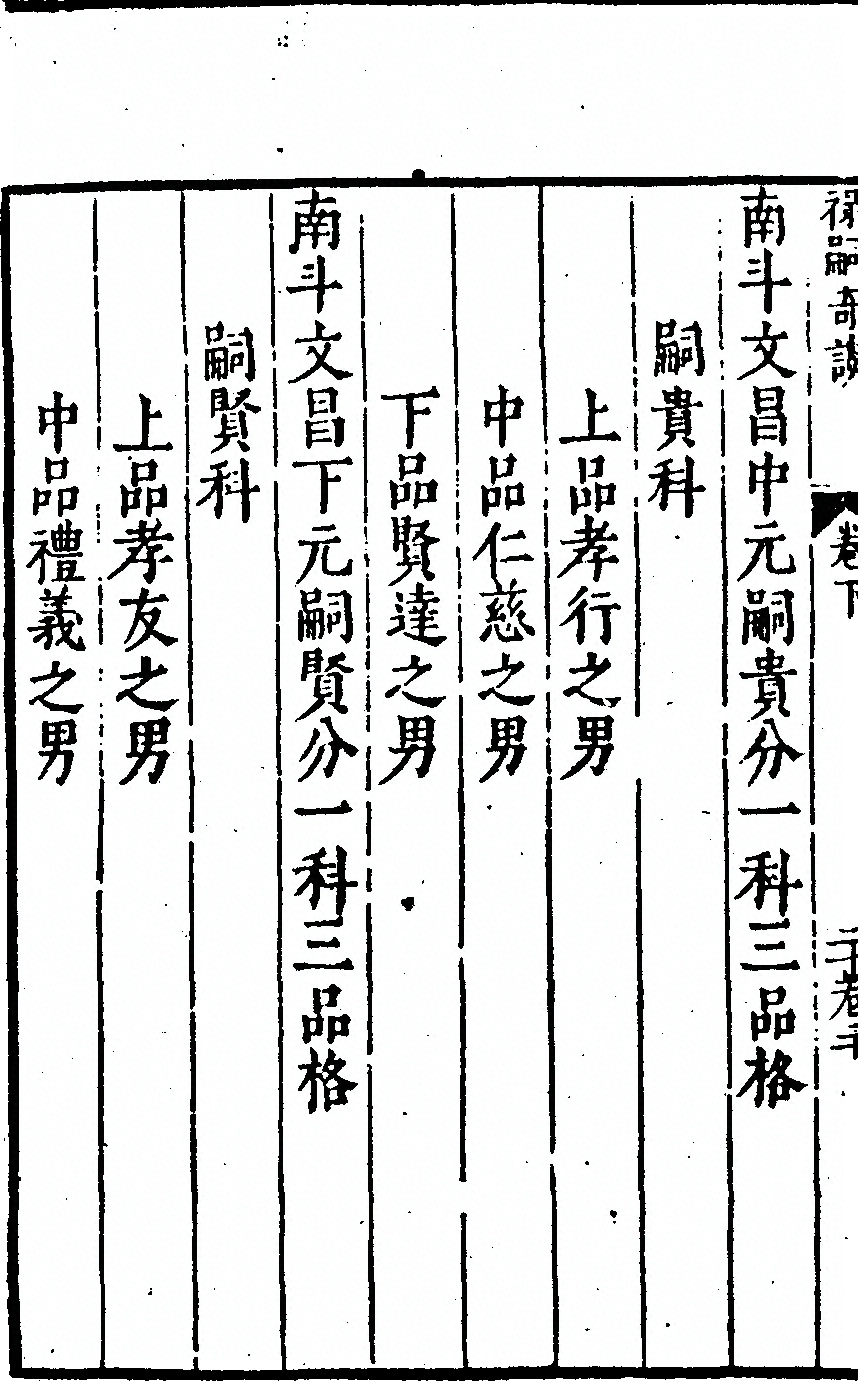 嗣奇談 卷下
南斗文昌中元嗣貴分一科三品格
嗣貴科
上品孝行之男
中品仁慈之男
下品賢達之男
南斗文昌下元嗣賢分一科三品格
嗣賢科
上品孝友之男
中品禮義之男